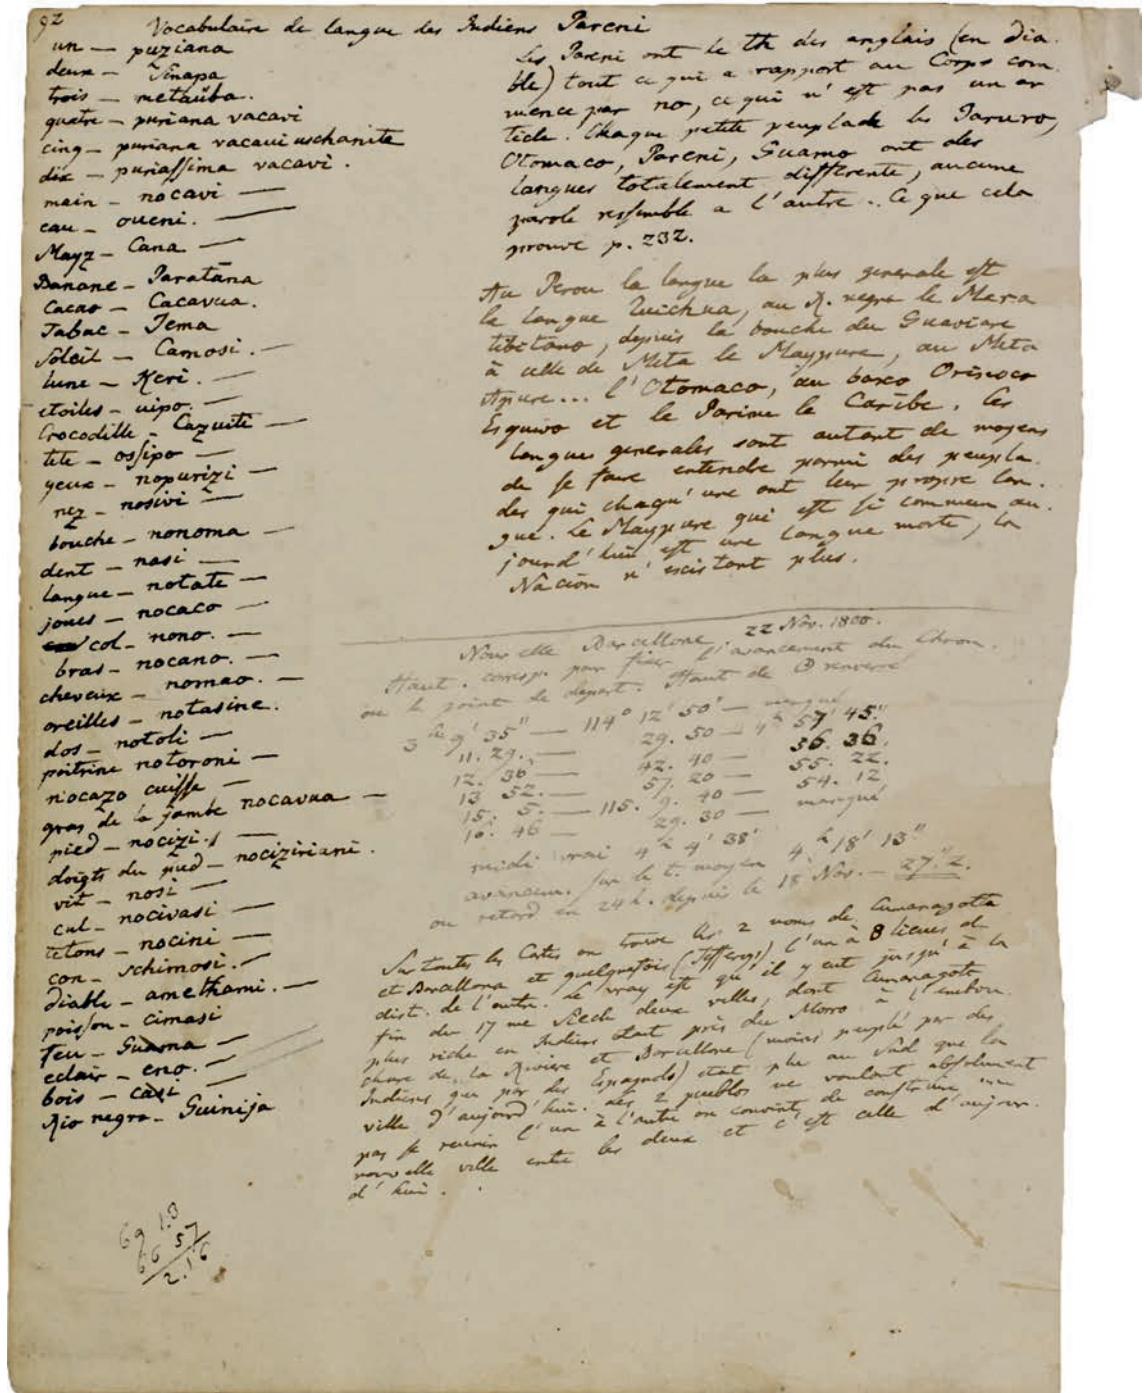 92
Vocabulaire de langue des Indiens Pareni
un — puziana
deux — Tinapa
trois — metaüba.
quatre — puriana vacavi
cinq — puriana vacavi uschanite
dix — puriassima vacavi.
main — nocavi —
eau — oueni. —
Mayz — Cana —
Banane — Paratana
Cacao — Cacavua.
Tabac — Jema
Soleil — Camosi. —
lune — Keri. —
etoiles — uipo. —
Crocodille — Cazuiti —
tete — ossipo —
yeux — nopurizi —
nez — nosivi —
bouche — nonoma —
dent — nasi —
langue — notate —
joues — nocaco —
col — nono. —
bras — nocano. —
cheveux — nomao. —
oreilles — notasine.
dos — notoli —
poitrine notoroni —
nocazo cuisse —
gras de la jambe nocavua —
pied — nocizi. —
doigts du pied — nociziriani.
vit — nosi —
cul — nocivasi —
tetons — nocini —
con — schimosi. —
diable — amethami. —
poisson — cimasi
feu — Guarna —
eclair — eno. —
bois — casi —
Rio negro — Guinija
69 1.3
66 57
2.16
Les Pareni ont le th des anglais (en dia
ble) tout ce qui a rapport au Corps com
mence par no, ce qui n'est pas un ar
ticle. Chaque petite peuplade les Jaruro,
Otomaco, Pareni, Guamo ont des
langues totalement differente, aucune
parole ressemble a l'autre.. Ce que cela
prouve p. 232.
Au Perou la langue la plus generale est
la langue Quichua, au R. negro le Mara
tibitano, depuis la bouche du Guaviare
à celle de Meta le Maypure, au Meta
Apure... l'Otomaco, au baxo Orinoco
Esquivo et le Parime le Caribe. Ces
langues generales sont autant de moyens
de se faire entendre parmi des peupla
des qui chaqu'une ont leur propre lan.
gue. Le Maypure qui est si commun au.
jourd'hui est une langue morte, la
Nacion n'existant plus.
Nouvelle Barcellone. 22 Nov. 1800.
Haut. corresp. pour fixer l'avancement du Chron.
ou le point de depart. Haut de ⊙ renversé
3h 9' 35" — 114° 12' 50" — manqué
11. 29. — 29. 50 — 4h 57' 45"
12. 36 — 42. 40 — 56. 36.
13 52. — 57. 20 — 55. 22.
15. 5. — 115. 9. 40 — 54. 12
16. 46 — 29. 30 — manqué
midi vrai 4h 4' 38" 4h 18' 13"
avancem. sur le t. moyen
ou retard en 24h. depuis le 18 Nov. — 27" 2.
Sur toutes les Cartes on trouve les 2 noms de Cumanagotta
et Barcellona et quelquefois (Jefferys) l'un à 8 lieues de
dist. de l'autre. Le vray est qu'il y eut jusqu'à la
fin du 17 me Siecle deux villes, dont Cumanagote
plus riche en Indiens etait près du Morro à l'embou.
chure de la Riviere et Barcellone (moins peuplé par des
Indiens que par des Espagnols) etait plu au Sud que la
ville d'aujourd'hui. Les 2 pueblos ne voulant absolument
pas se reunir l'un à l'autre on convint de construire une
nouvelle ville entre les deux et c'est celle d'aujour.
d'hui.